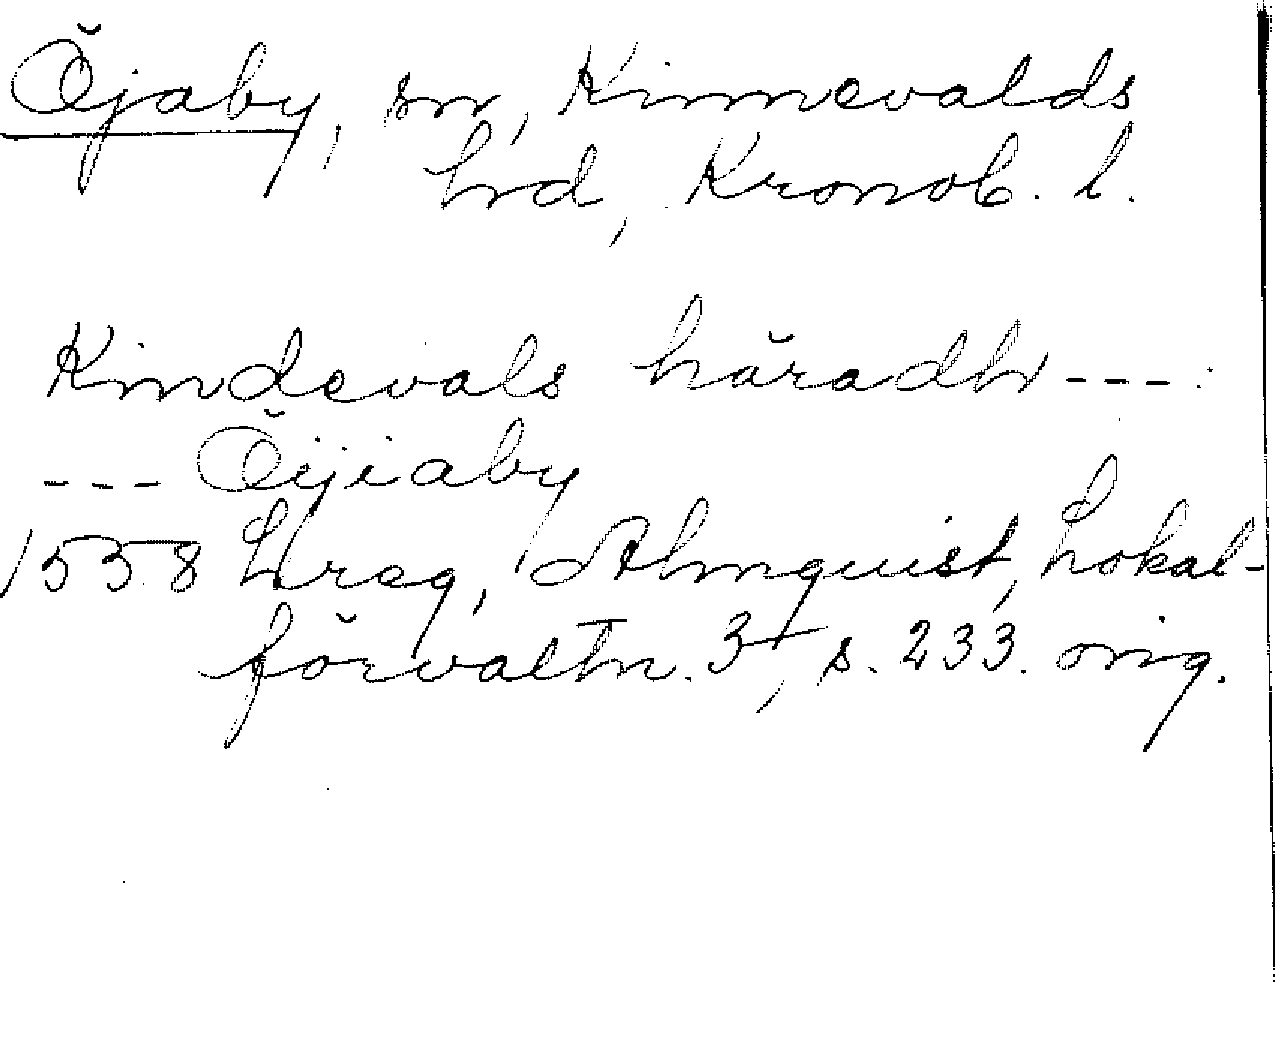 Öjaby, sn, Kinnevalds
hrd, Kronob. l.
Kindevals häradh ---:
--- Öijiaby
1558 Lreg, Almquist, Lokal-
förvaltn. 3, s. 233. orig.